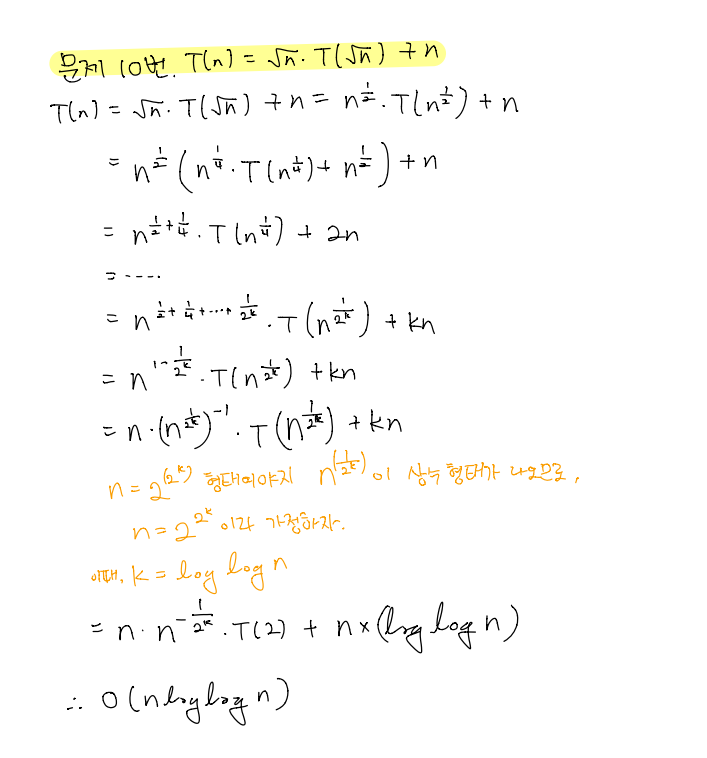 문제 10번. T(n) = √n · T(√n) + n
T(n) = √n · T(√n) + n = n^(1/2) · T(n^(1/2)) + n
= n^(1/2) (n^(1/4) · T(n^(1/4)) + n^(1/2)) + n
= n^(1/2+1/4) · T(n^(1/4)) + 2n
= ....
= n^(1/2+1/4+...+1/2^k) · T(n^(1/2^k)) + kn
= n^(1-1/2^k) · T(n^(1/2^k)) + kn
= n · (n^(1/2^k))^(-1) · T(n^(1/2^k)) + kn
n = 2^(2^k) 형태여야지 n^(1/2^k) 이 상수 형태가 나오므로,
n = 2^2^k 이라 가정하자.
이때, k = log log n
= n · n^(-1/2^k) · T(2) + n × (log log n)
∴ O(n log log n)